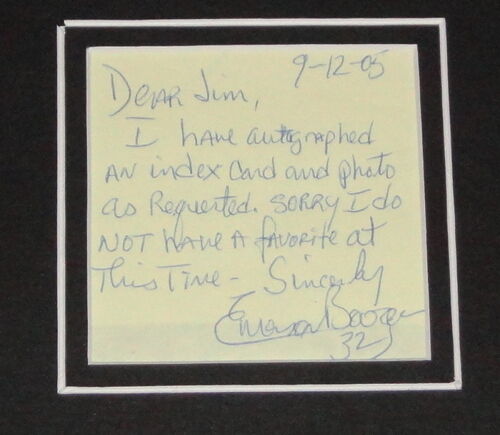 9-12-05
Dear Jim,
I have autographed
an index card and photo
as Requested. Sorry I do
Not have a favorite at
This Time - Sincerely
Emerson Boozer
32